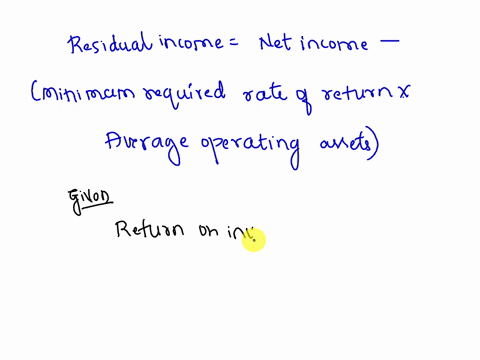 Residual income = Net income —
(minimum required rate of return x
Average operating assets)
Given
Return on inv